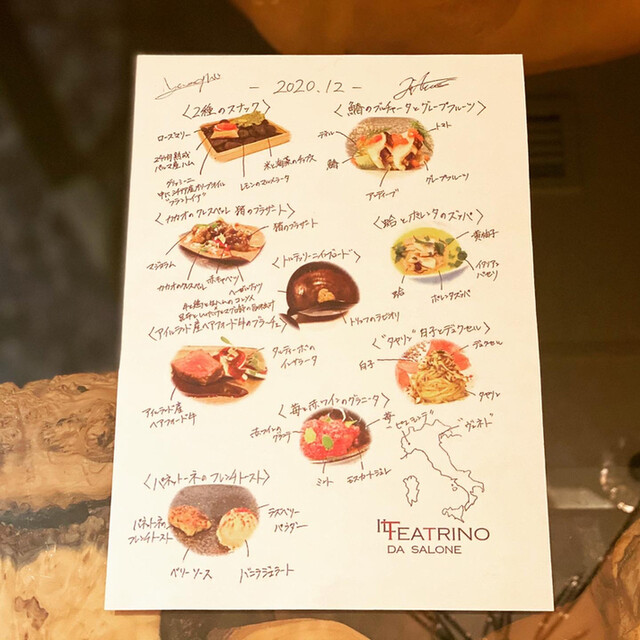 - 2020.12 -
〈2種のスナック〉
ローズマリー
24ヶ月熟成
パルマ産ハム
グリッシーニ
レモンのマルメラータ
米と海藻のチップス
〈鰆のブルチャータとグレープフルーツ〉
トマト
鰆
アンディーブ
グレープフルーツ
〈カカオのクレスペッレ 猪のブラザート〉
猪のブラザート
マジョラム
カカオのクレスペッレ
赤キャベツ
ヘーゼルナッツ
〈蛤とポレンタのズッパ〉
黄柚子
イタリアン
パセリ
蛤
ポレンタズッパ
〈トルテッリーニ インブロード〉
トリュフのラビオリ
〈アイルランド産ヘアフォード牛のブラーチェ〉
タルティーボの
インサラータ
アイルランド産
ヘアフォード牛
〈"タヤリン" 白子とデュクセル〉
デュクセル
白子
タヤリン
〈苺と赤ワインのグラニータ〉
赤ワインの
グラニタ
苺
ミント
モスカートジュレ
"ピエモンテ"
"ヴェネト"
〈パネットーネのフレンチトースト〉
パネットーネの
フレンチトースト
ラズベリー
パウダー
ベリーソース
バニラジェラート
IL TEATRINO
DA SALONE